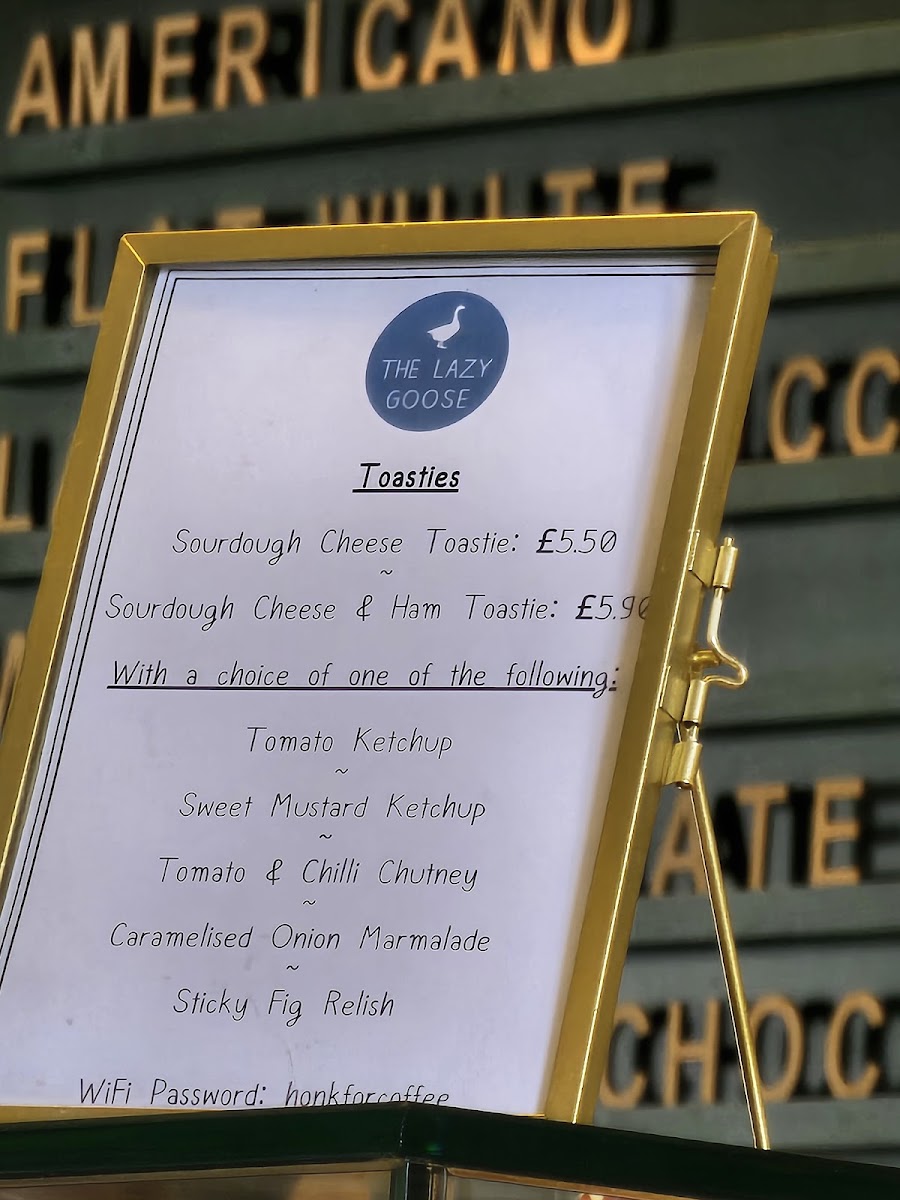 AMERICANO
THE LAZY
GOOSE
Toasties
Sourdough Cheese Toastie: £5.50
~
Sourdough Cheese & Ham Toastie: £5.90
With a choice of one of the following:
Tomato Ketchup
~
Sweet Mustard Ketchup
~
Tomato & Chilli Chutney
~
Caramelised Onion Marmalade
~
Sticky Fig Relish
WiFi Password: honkforcoffee